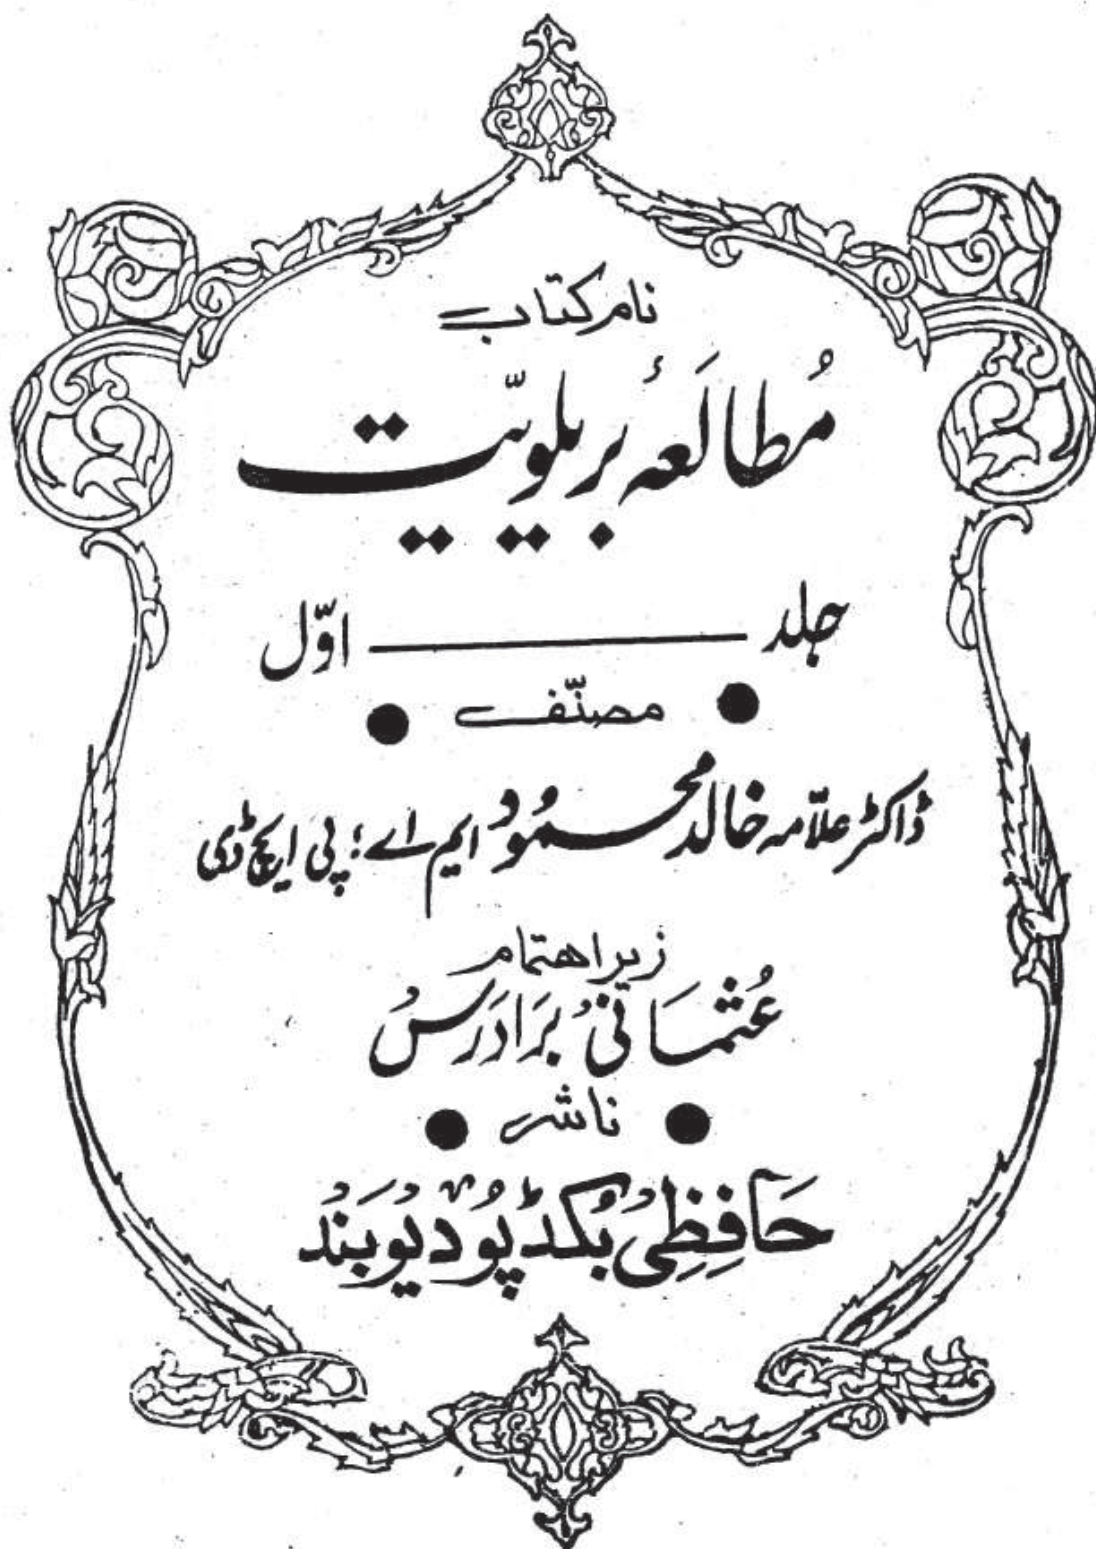 نام کتاب
مُطالَعۂ بریلویّت
جلد ——— اوّل
● مصنّف ●
ڈاکٹر علّامہ خالد محمُود ایم اے؛ پی ایچ ڈی
زیر اهتمام
عُثمَانیْ بَرَادَرسْ
● ناشر ●
حَافِظِیْ بُکڈپُو دیُوبَنْد